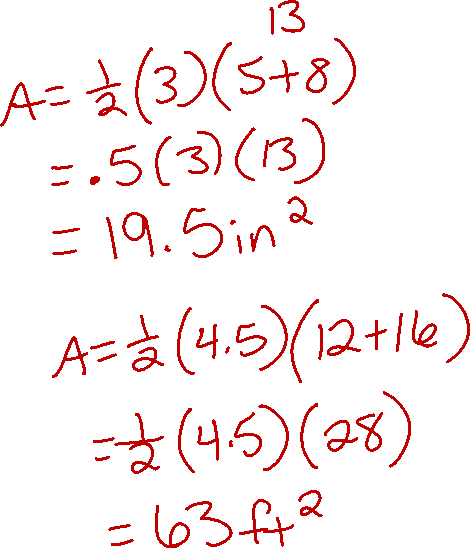 13
A = 1/2 (3)(5+8)
= .5(3)(13)
= 19.5 in²
A = 1/2 (4.5)(12+16)
= 1/2 (4.5)(28)
= 63 ft²